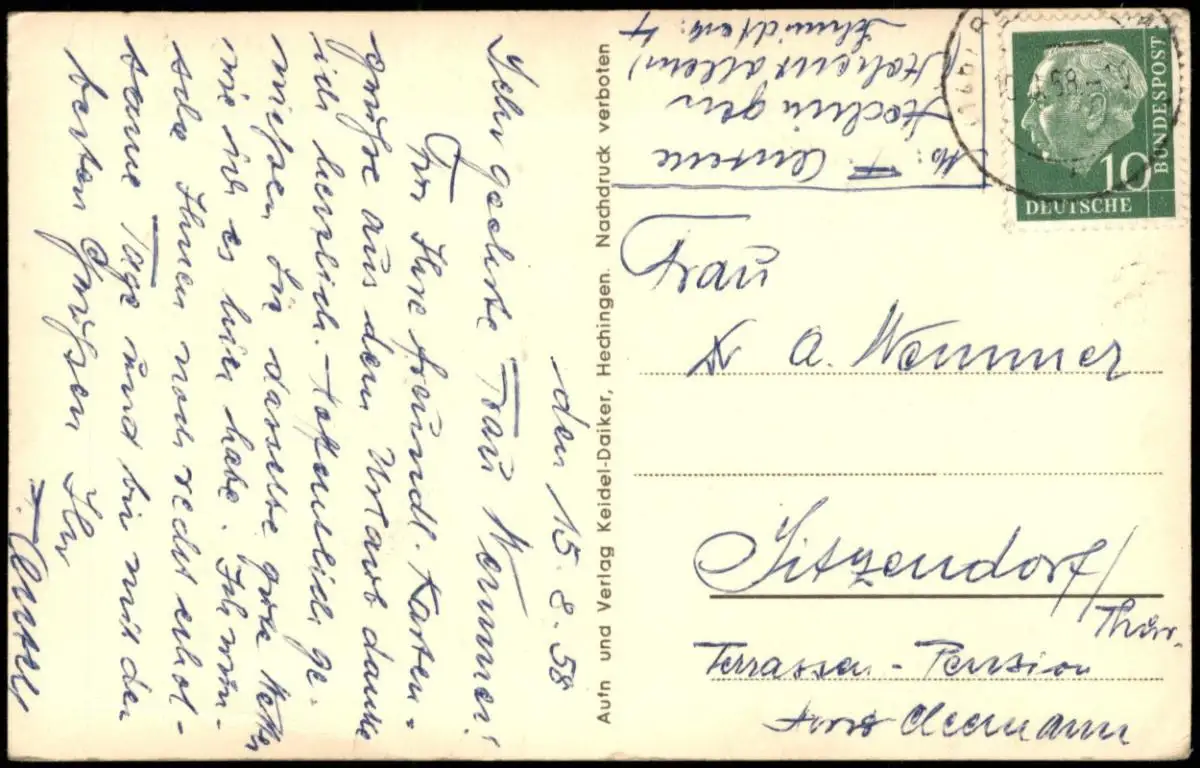 den 15. 8. 58
Sehr geehrte Frau Wemmer!
Für Ihre freundl. Karten-
grüße aus dem Urlaub danke
ich herzlich. Hoffentlich ge-
nießen Sie dasselbe gute Wetter
wie ich es hier habe. Ich wün-
sche Ihnen noch recht erhol-
same Tage und bin mit den
besten Grüßen Ihr
Aufn und Verlag Keidel-Daiker, Hechingen. Nachdruck verboten
Hechingen
(Hohenzollern)
4
58
10
DEUTSCHE
BUNDESPOST
Frau
Dr A. Wemmer
Sitzendorf/
Thür.
Terrassen-Pension